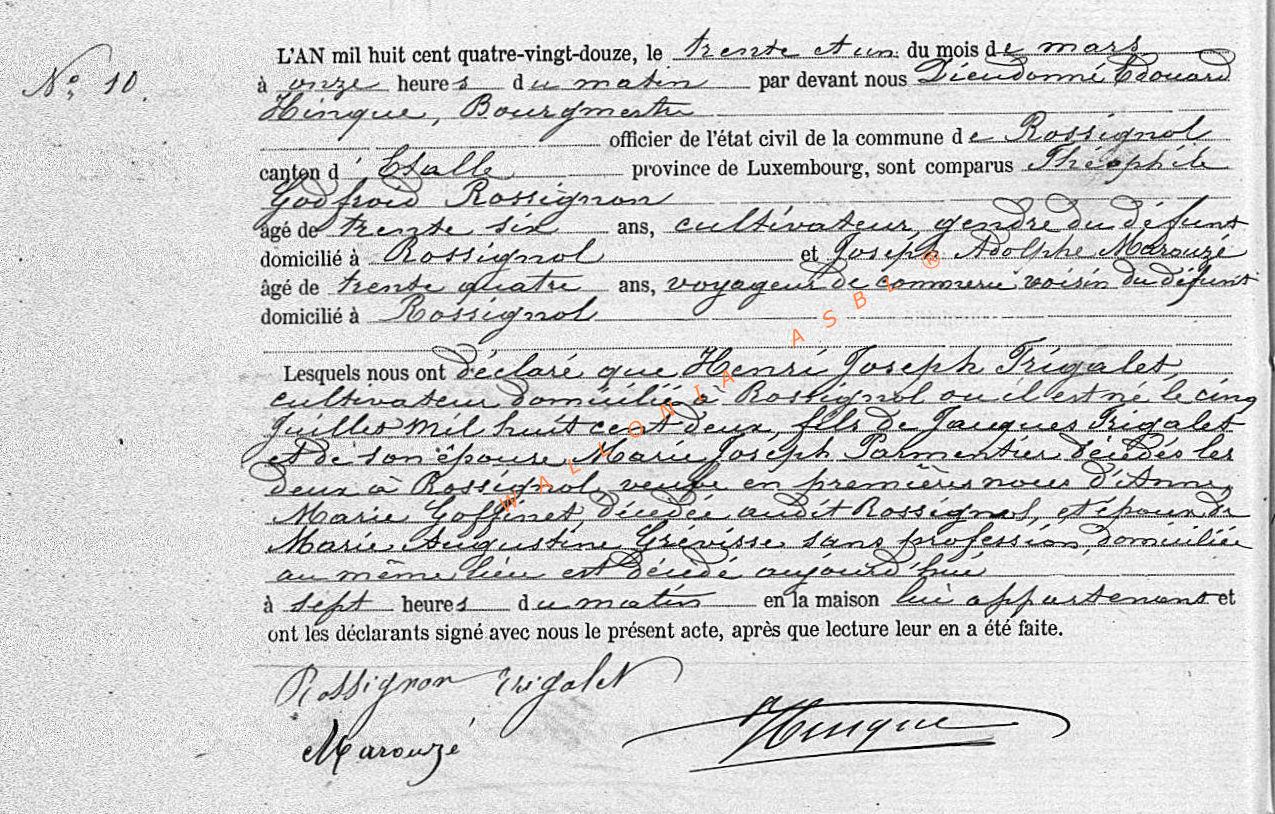 No. 10.
L'AN mil huit cent quatre-vingt-douze, le trente et un du mois de mars
à onze heures du matin par devant nous Dieudonné Edouard
Hinque, Bourgmestre
officier de l'état civil de la commune de Rossignol
canton d'Etalle province de Luxembourg, sont comparus Théophile
Godfroid Rossignon
âgé de trente six ans, cultivateur, gendre du défunt
domicilié à Rossignol et Joseph Adolphe Marouzé
âgé de trente quatre ans, voyageur de commerce voisin du défunt
domicilié à Rossignol
Lesquels nous ont déclaré que Henri Joseph Trigalet,
cultivateur domicilié à Rossignol ou il est né le cinq
Juillet mil huit cent deux, fils de Jacques Trigalet
et de son épouse Marie Joseph Parmentier décédés les
deux à Rossignol, veuve en premières nous d'Anne
Marie Goffinet décédée audit Rossignol, et époux de
Marie Augustine Grévisse sans profession, domiciliée
au même lieu est décédé aujourd'hui
à sept heures du matin en la maison lui appartenant et
ont les déclarants signé avec nous le présent acte, après que lecture leur en a été faite.
Rossignon Trigalet
Marouzé
Hinque
WALLONIA ASBL ®